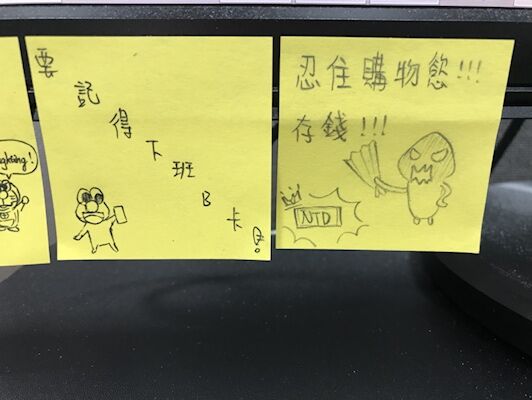 ghting!
要記得下班B卡
忍住購物慾!!!
存錢!!!
NTD